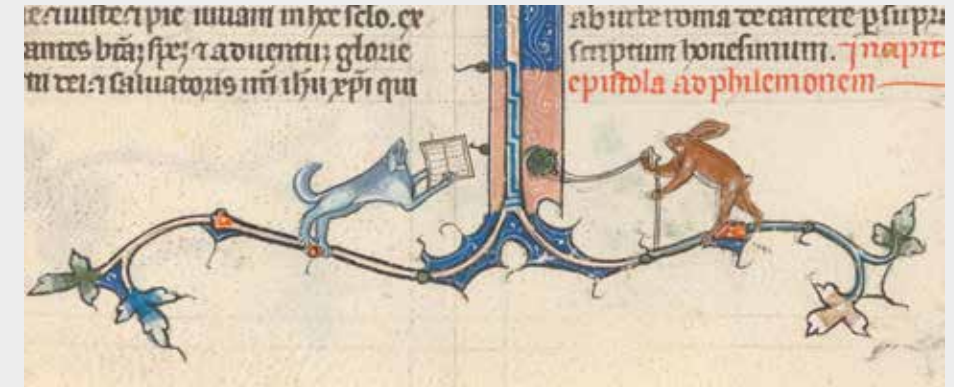 et iuste et pie iuuam in hoc sclo. ex
antes btā; spe; ⁊ aduentū; glorie
dei ⁊ saluatoris nrī ihū xpī qui
ab urbe roma de carcere p supra
scriptum honesimum.
epistola ad philemonem